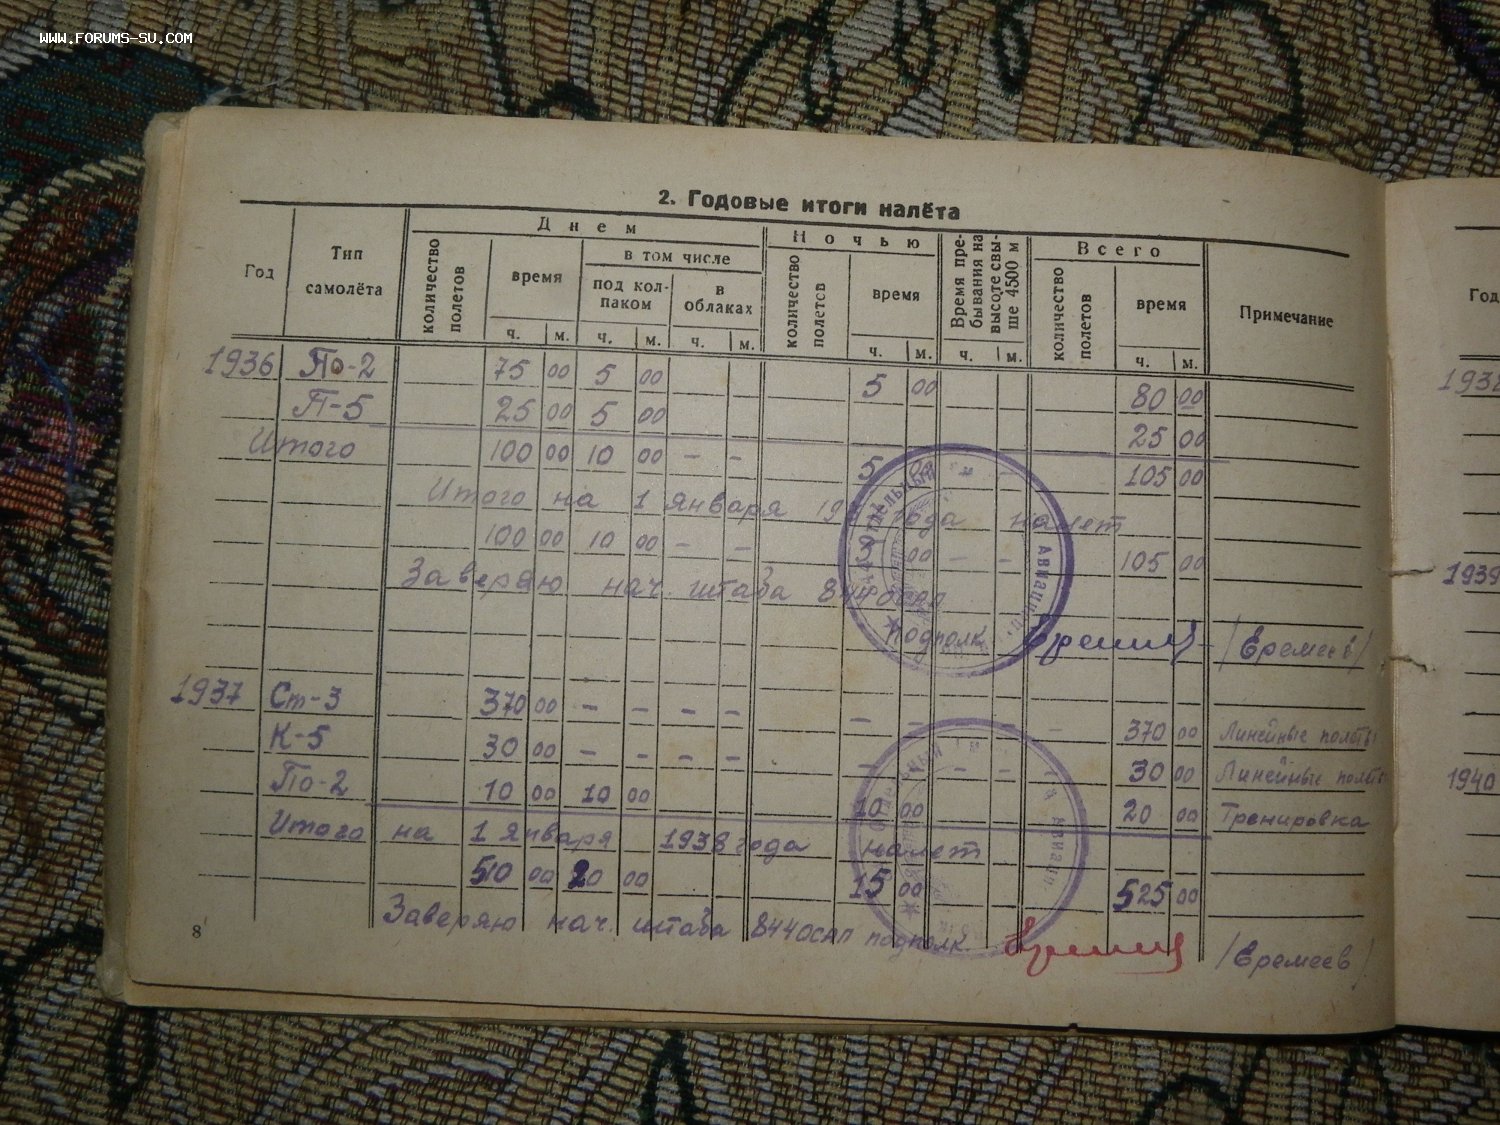 WWW.FORUMS-SU.COM
2. Годовые итоги налёта
Год
Тип самолёта
Днем
количество полетов
время
в том числе
под кол-
паком
в
облаках
Ночью
количество полетов
время
Время пре-
бывания на
высоте свы-
ше 4500 м
Всего
количество полетов
время
Примечание
ч. м. ч. м. ч. м. ч. м. ч. м. ч. м.
1936 По-2 75 00 5 00 5 00 80 00
П-5 25 00 5 00 25 00
Итого 100 00 10 00 - - 5 00 - - 105 00
Итого на 1 января 19 года налет
100 00 10 00 - - 00 - - 105 00
Заверяю нач. штаба 844
подполк. /Еремеев/
1937 Ст-3 370 00 - - - - - - - - 370 00 Линейные полеты
К-5 30 00 - - - - - - - - 30 00 Линейные полеты
По-2 10 00 10 00 10 00 20 00 Тренировка
Итого на 1 января 1938 года налет
510 00 20 00 15 00 525 00
Заверяю нач. штаба 844 ОСАП подполк. /Еремеев/
8
Год
1938
1939
1940